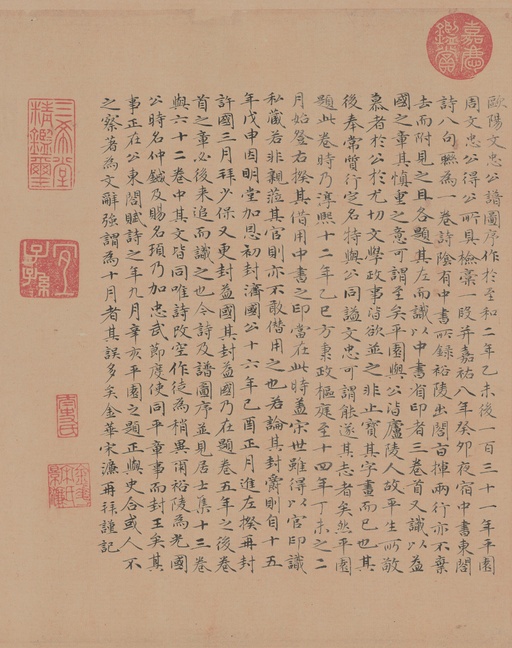 歐陽文忠公譜圖序作於至和二年乙未後一百三十一年平園
周文忠公得公所具檢稾一段并嘉祐八年癸卯夜宿中書東閤
詩八句聮為一卷詩陰有中書所錄裕陵出閤百揮兩行亦不棄
去而附見之且各題其左而識以中書省印者三卷首又識以益
國之章其慎重之意可謂至矣平園與公皆廬陵人故平生所敬
慕者於公於尤切文學政事皆欲並之非止寶其字畫而已也其
後奉常質行定名特與公同謚文忠可謂能遂其志者矣然平園
題此卷時乃淳熙十二年乙巳方秉政樞庭至十四年丁未之二
月始登右揆其借用中書之印當在此時蓋宗世雖得以官印識
私藏若非親蒞其官則亦不敢僭用之也若論其封爵則自十五
年戊申因明堂加恩初封濟國公十六年己酉正月進左揆再封
許國三月拜少保又更封益國其封益國乃在題卷五年之後卷
首之章必後來追而識之也今詩及譜圖序並見居士集十三卷
與六十二卷中其文皆同唯詩改空作徒為稍異爾裕陵為光國
公時名仲鍼及賜名頊乃加忠武節度使同平章事而封王矣其
事正在公東閤賦詩之年九月辛亥平園之題正與史合或人不
之察者為文辭強謂為十月者其誤多矣金華宋濂再拜謹記
嘉慶鑑賞
三希堂精鑑璽
宜子孫